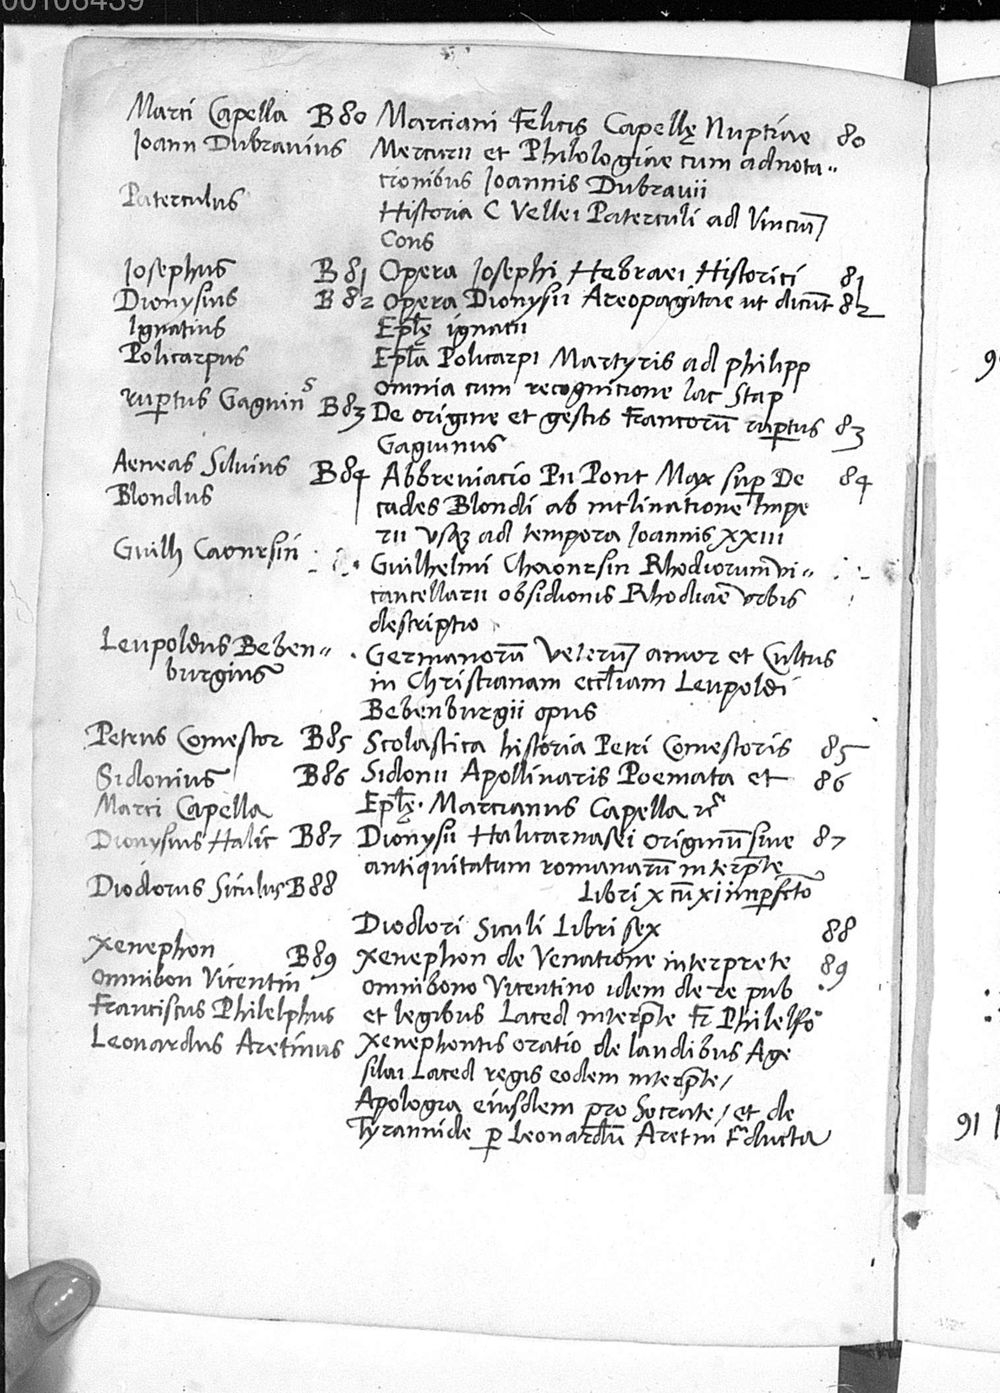 00106439
Marci Capella B 80 Marciani Felicis Capellę Nuptiae 80
Joann Dubravius Mercurii et Philologiae cum adnota„
cionibus Joannis Dubravii
Paterculus Historia C Vellei Paterculi ad Vinciũ
Cons
Josephus B 81 Opera Josephi Hebraei Historici 81
Dionysius B 82 Opera Dionysii Areopagitae ut dicũt 82
Ignatius Epl̃ę ignacii
Policarpus Epl̃a Policarpi Martyris ad philipp
omnia cum recognicione Iac Stap
ruꝑtus Gaguin^s B 83 De origine et gestis Francorũ ruꝑtus 83
Gaguinus
Aeneas Silvius B 84 Abbreviacio Pii Pont Max suꝑ De 84
Blondus cades Blondi ab inclinatione Impe
rii Vsqʒ ad tempora Joannis XXIII
Guilh Caoursin Guilhelmi Chaoursin Rhodiorum vi„
cancellarii obsidionis Rhodiae vrbis
descriptio
Leupoldus Beben„ Germanorũ Veterũ amor et Cultus
burgius in Christianam eccl̃iam Leupoldi
Bebenburgii opus
Petrus Comestor B 85 Scolastica historia Petri Comestoris 85
Sidonius B 86 Sidonii Apollinaris Poemata et 86
Marci Capella Epl̃ę. Marcianus Capella
Dionysius Halic B 87 Dionysii Halicarnasei originũ sive 87
antiquitatum romanarũ interp̃te
Diodorus Siculus B 88 Libri x cũ xi imperfecto
Diodori Siculi Libri sex 88
Xenephon B 89 Xenephon de Venatione interprete 89
Omnibon Vicentin omnibono Vicentino idem de re pub
Franciscus Philelphus et legibus Laced interp̃te Fr Philelfo
Leonardus Aretinus Xenephontis oratio de laudibus Age
silai Laced regis eodem interp̃te/
Apologia eiusdem pro Socrate/ et de
Tyrannide ꝑ Leonardũ Aretin
91